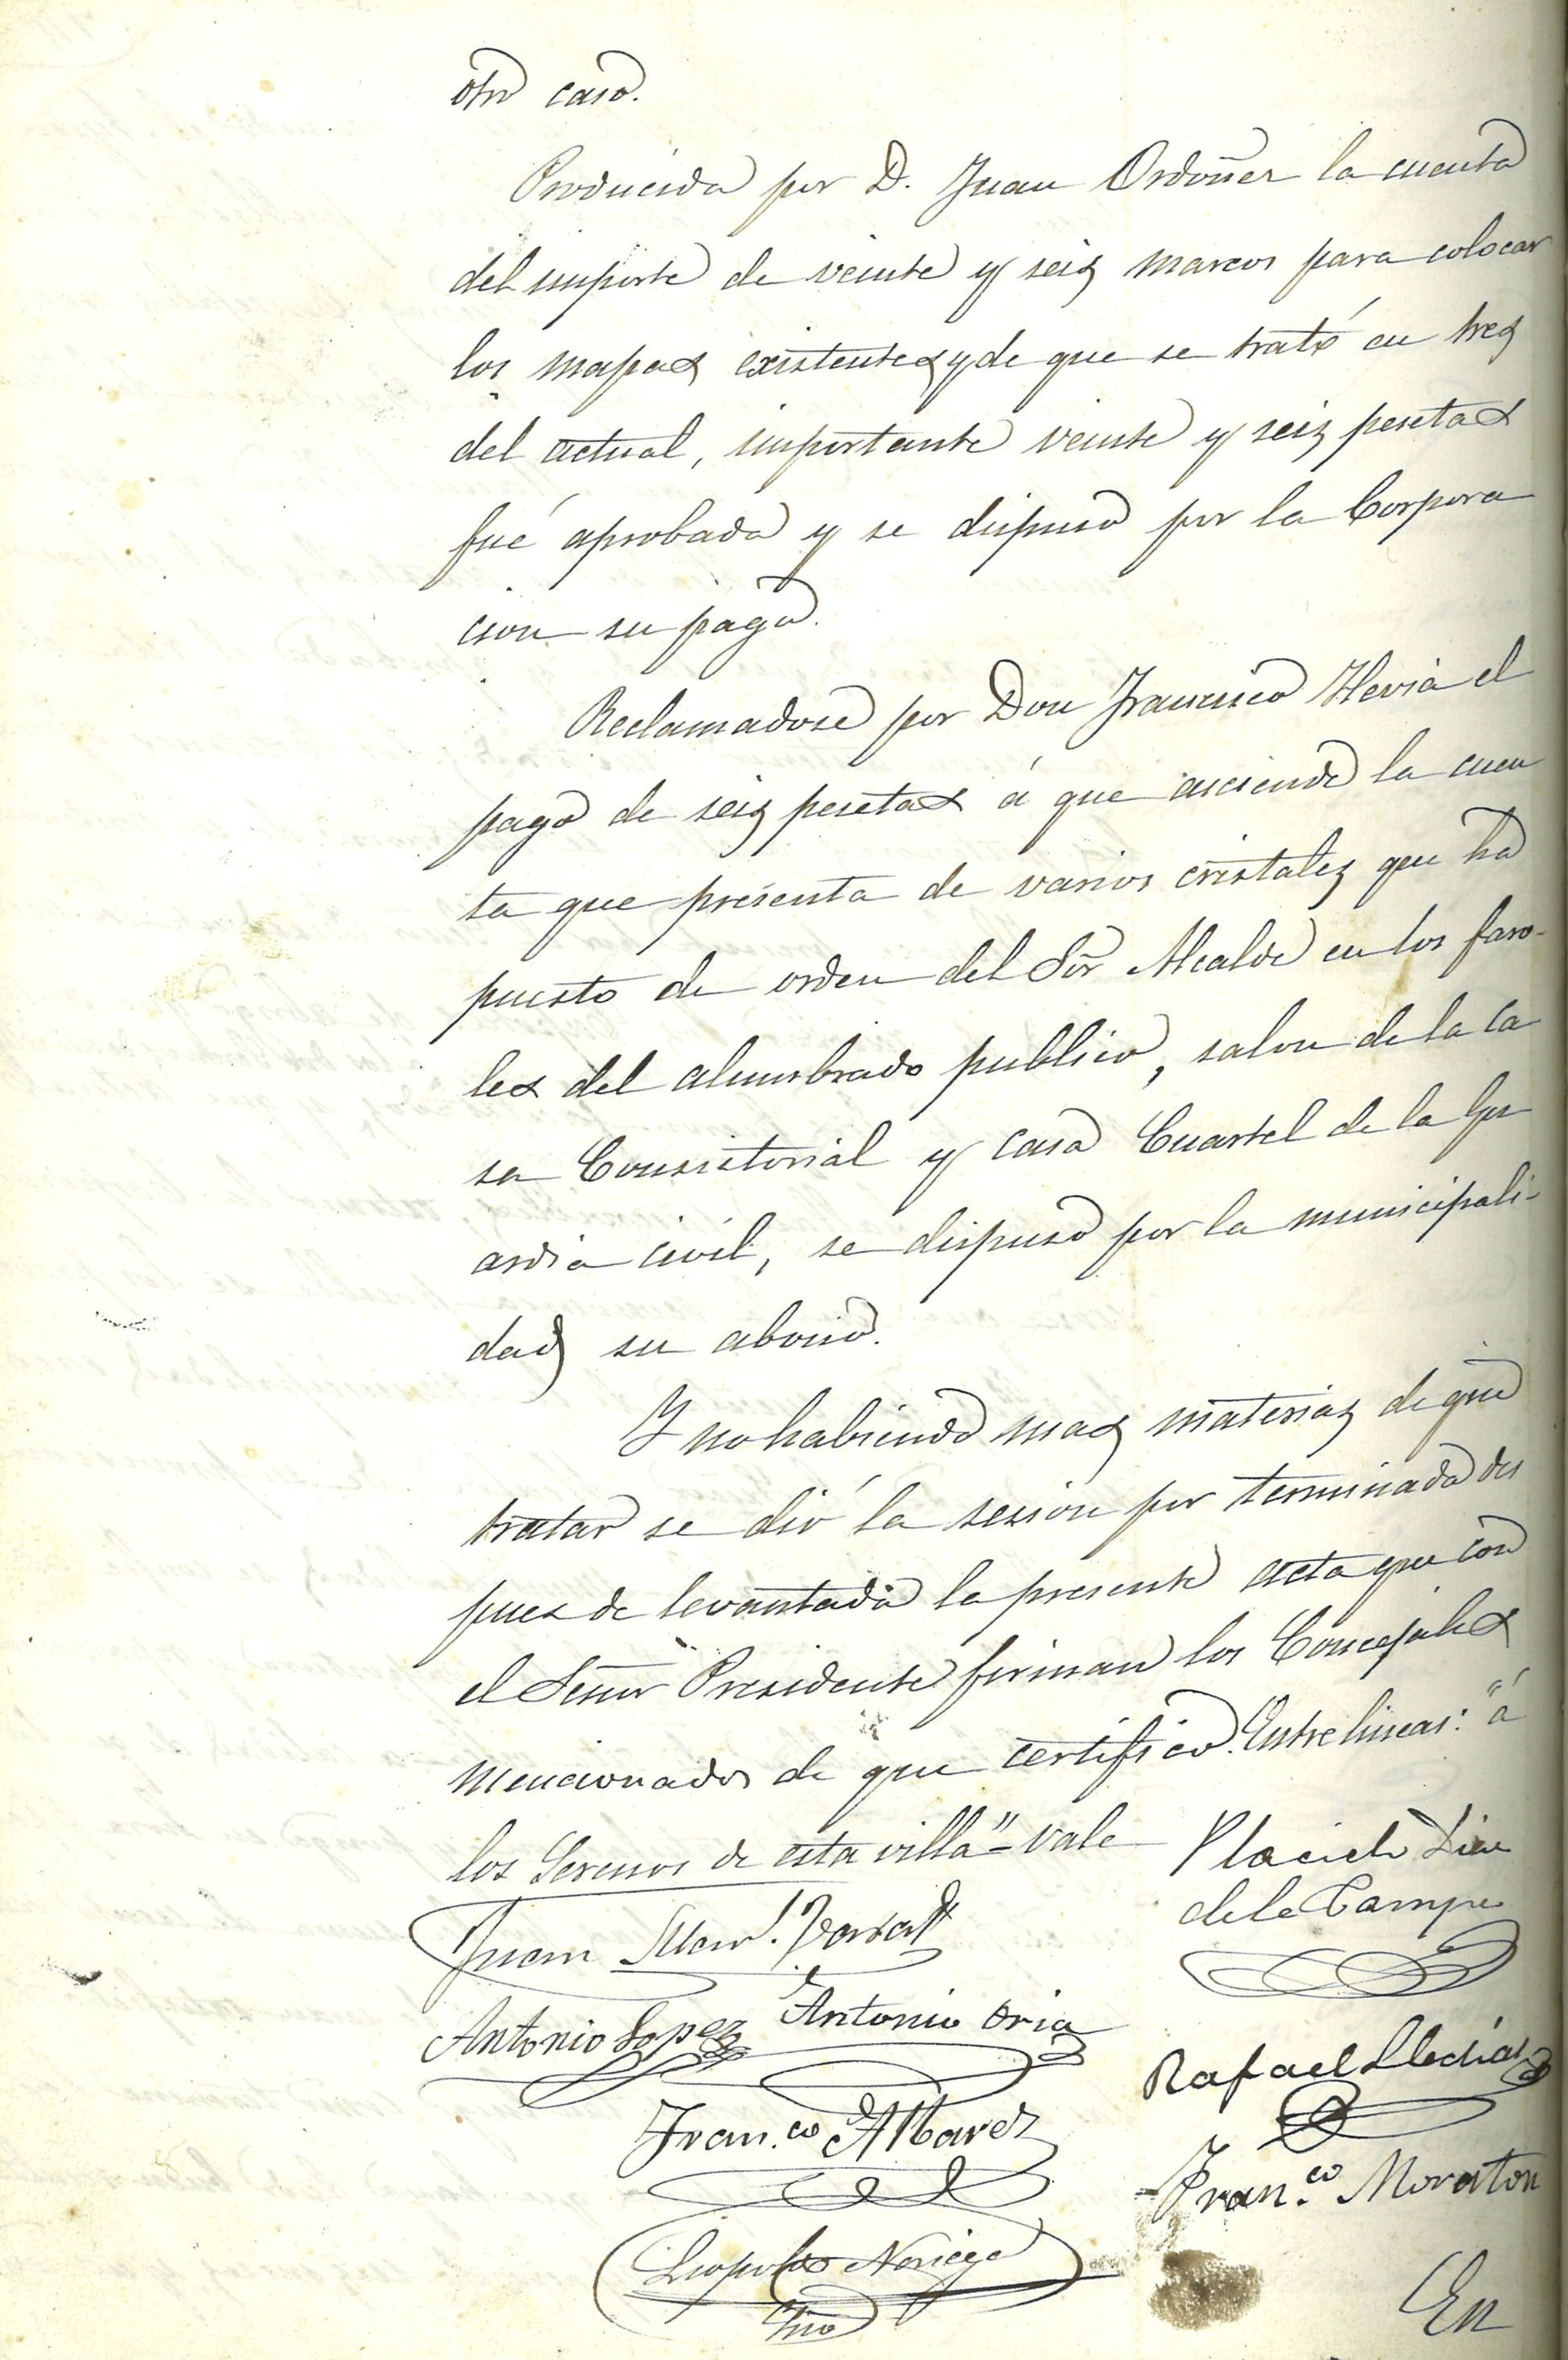 otro caso.
Producida por D. Juan Ordoñez la cuenta
del importe de veinte y seis marcos para colocar
los mapas existentes y de que se trató en tres
del actual, importante veinte y seis pesetas
fué aprobada y se dispuso por la Corpora
cion su pago.
Reclamadose por Don Francisco Hevia el
pago de seis pesetas á que asciende la cuen
ta que presenta de varios cristales que ha
puesto de orden del Sõr Alcalde en los faro-
les del alumbrado publico, salon de la Ca
sa Consistorial y casa Cuartel de la Gu
ardia civil, se dispuso por la municipali-
dad su abono.
Y no habiendo mas materias de que
tratar se dió la sesion por terminada des
pues de levantada la presente acta que con
el Señor Presidente firman los Concejales
mencionados de que certifico. Entre lineas: "á
los Serenos de esta villa"=vale
Placido Diaz
de la Campa
Juan
Antonio Lopez Antonio Oria
Rafael
Fran.co Alvarez
Fran.co Moraton
Leopoldo Noriega
Srio
En